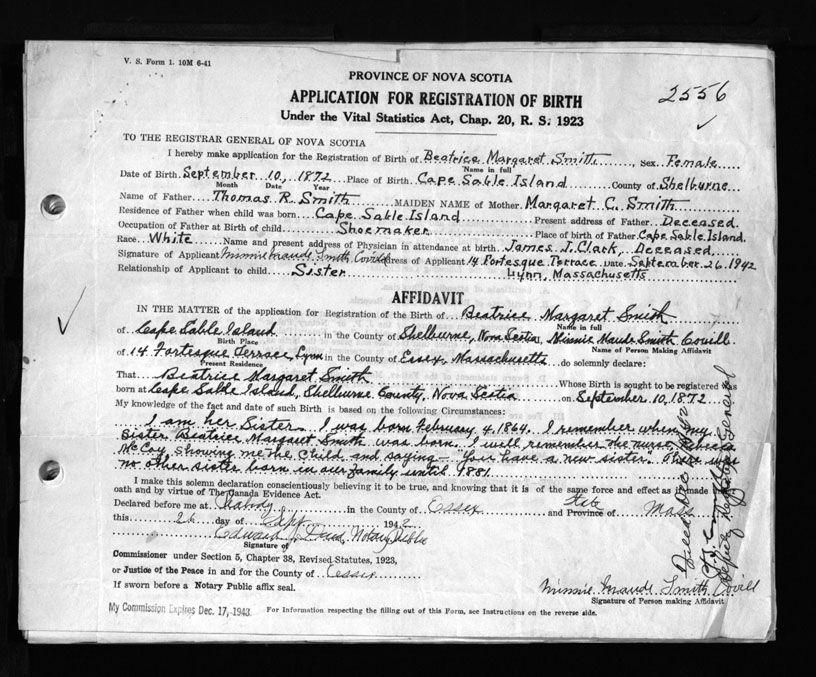 V. S. Form 1. 10M 6-41
PROVINCE OF NOVA SCOTIA
2556
APPLICATION FOR REGISTRATION OF BIRTH
Under the Vital Statistics Act, Chap. 20, R. S. 1923
TO THE REGISTRAR GENERAL OF NOVA SCOTIA
I hereby make application for the Registration of Birth of Beatrice Margaret Smith, Sex Female
Name in full
Date of Birth September 10, 1872 Place of Birth Cape Sable Island County of Shelburne
Month Date Year
Name of Father Thomas R. Smith MAIDEN NAME of Mother Margaret C. Smith
Residence of Father when child was born Cape Sable Island Present address of Father Deceased.
Occupation of Father at Birth of child Shoemaker Place of birth of Father Cape Sable Island.
Race White Name and present address of Physician in attendance at birth James I. Clark, Deceased
Signature of Applicant Minnie Maude Smith Covill Address of Applicant 14 Fortesque Terrace Date September 26, 1942
Relationship of Applicant to child Sister Lynn, Massachusetts
AFFIDAVIT
IN THE MATTER of the application for Registration of the Birth of Beatrice Margaret Smith
Name in full
of Cape Sable Island in the County of Shelburne, Nova Scotia, Minnie Maude Smith Covill
Birth Place Name of Person Making Affidavit
of 14 Fortesque Terrace, Lynn in the County of Essex, Massachusetts do solemnly declare:
Present Residence
That Beatrice Margaret Smith Whose Birth is sought to be registered was
born at Cape Sable Island, Shelburne County, Nova Scotia on September 10, 1872
My knowledge of the fact and date of such Birth is based on the following Circumstances:
I am her Sister. I was born February 4, 1864. I remember when my
sister Beatrice Margaret Smith was born. I well remember the nurse, Rebecca
McCoy, showing me the child and saying - "You have a new sister". There was
no other sister born in our family until 1881.
I make this solemn declaration conscientiously believing it to be true, and knowing that it is of the same force and effect as if made under
oath and by virtue of The Canada Evidence Act.
Declared before me at in the County of Essex State and Province of Mass
this 26 day of Sept 1942
Edward Notary Public
Signature of
Commissioner under Section 5, Chapter 38, Revised Statutes, 1923,
or Justice of the Peace in and for the County of Essex
If sworn before a Notary Public affix seal.
Minnie Maude Smith Covill
Signature of Person making Affidavit
My Commission Expires Dec. 17, 1943.
For Information respecting the filling out of this Form, see Instructions on the reverse side.
Deputy Registrar General